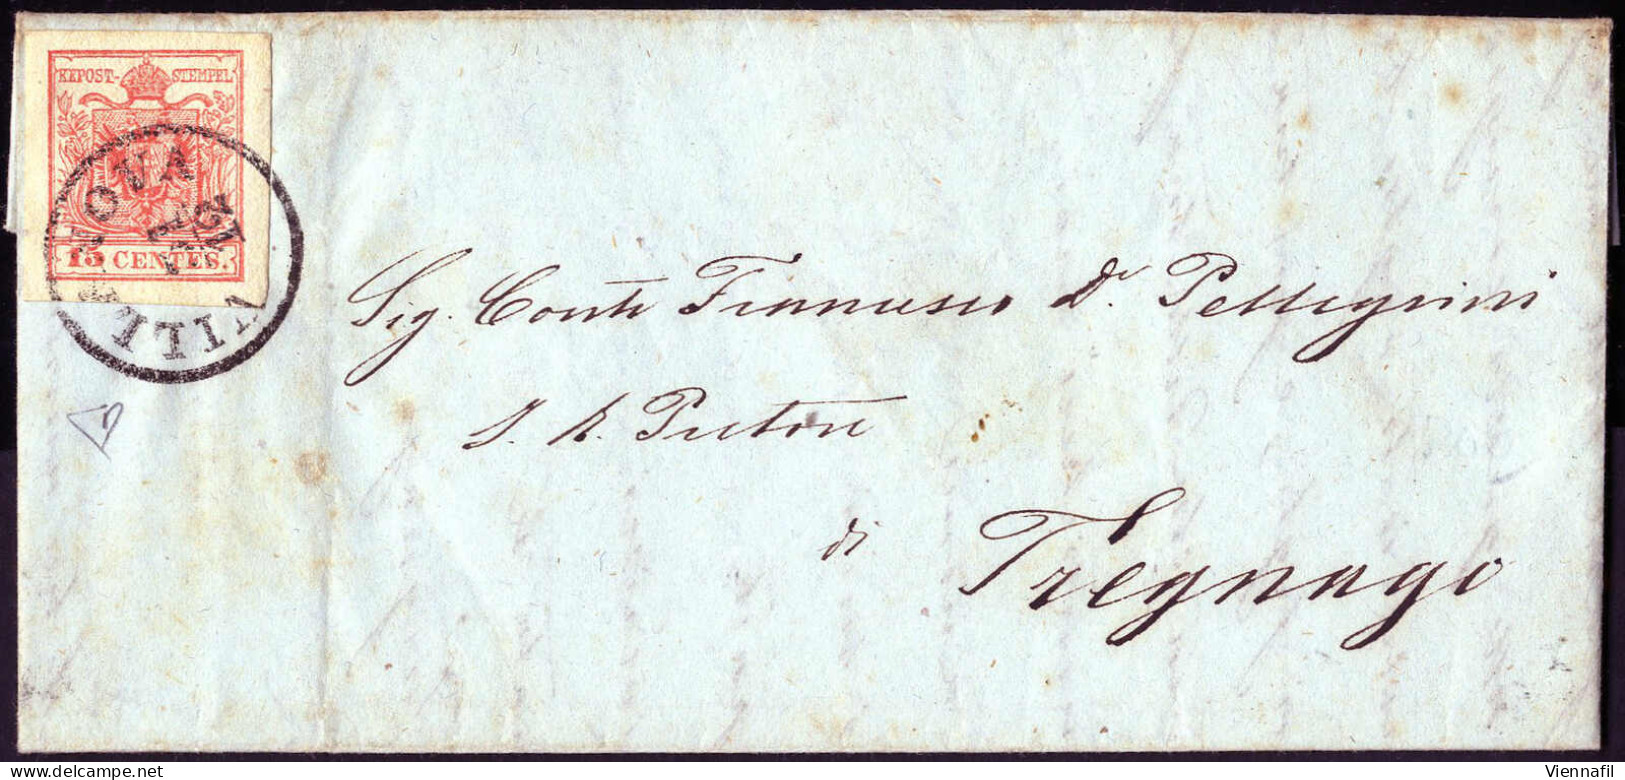 KKPOST-STEMPEL
15 CENTES.
VILLANOVA
Sig. Conte Francesco Dr. Pellegrini
I. R. Pretore
di
Tregnago
Viennafil